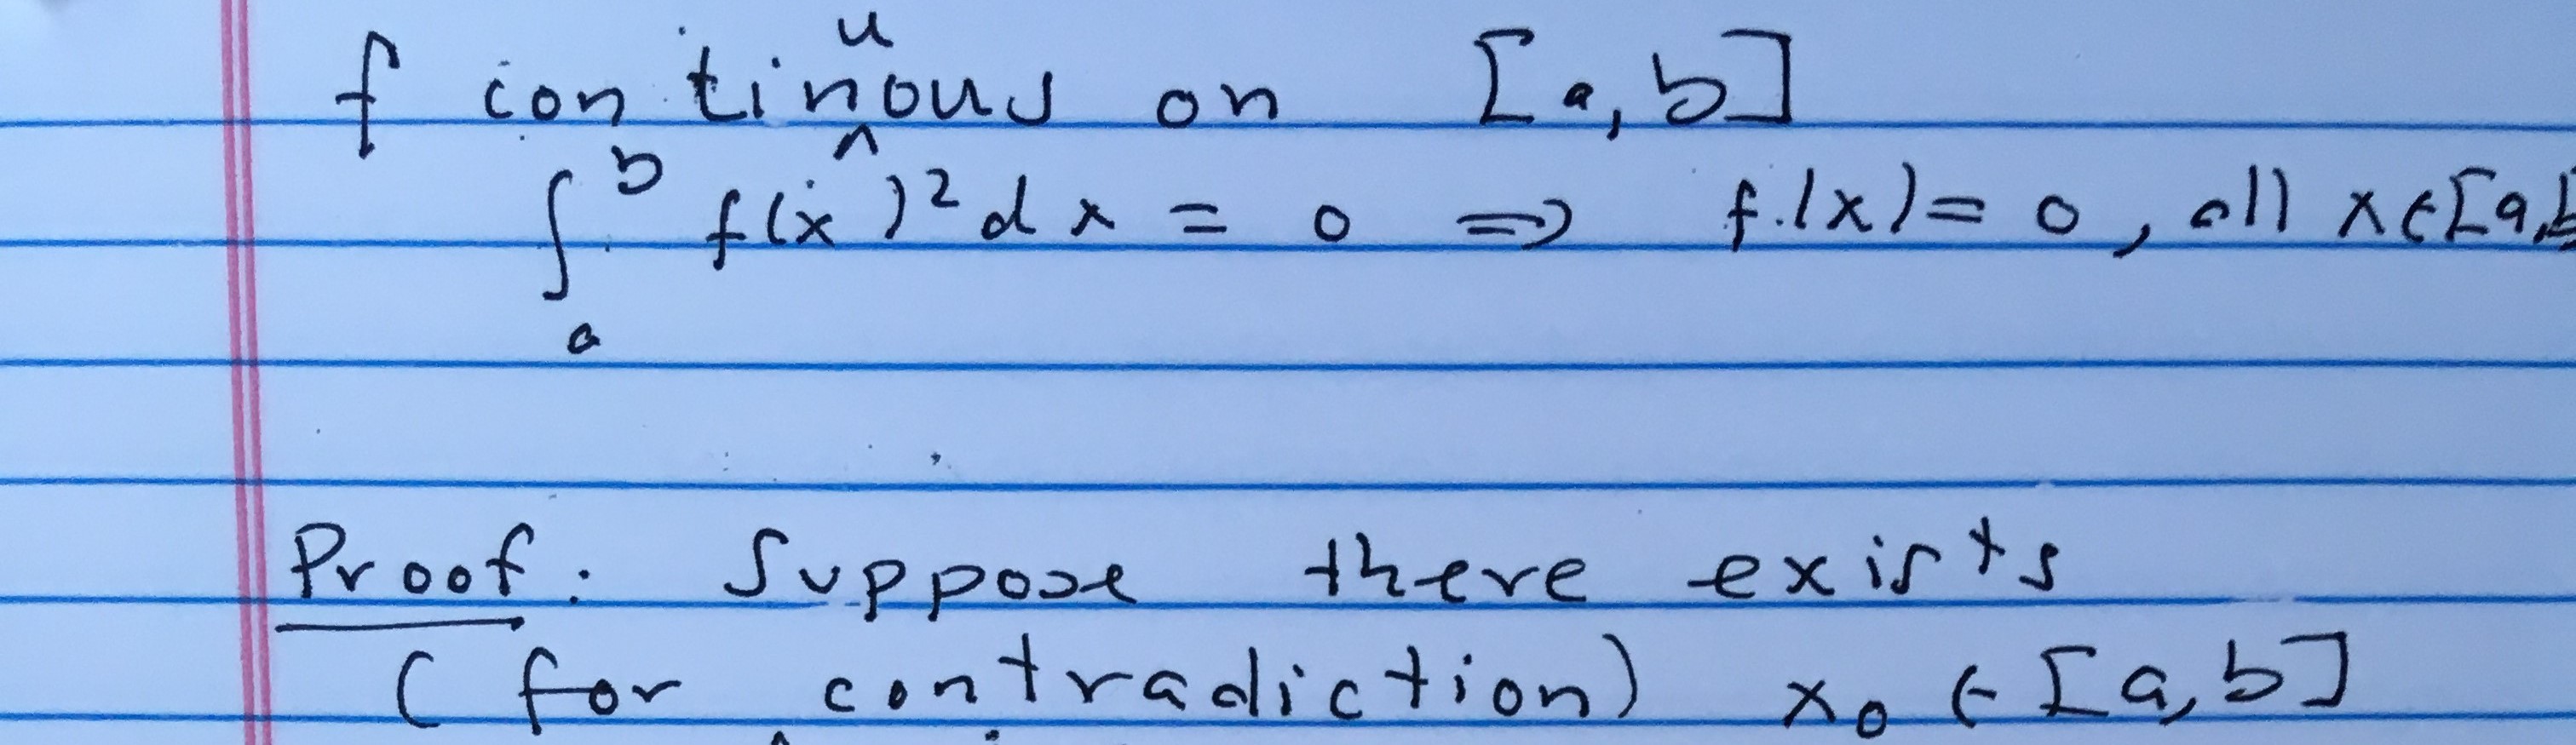 f continuous on [a, b]
∫_a^b f(x)² dx = 0 ⟹ f(x) = 0, all x ∈ [a, b
Proof: Suppose there exists
(for contradiction) x₀ ∈ [a, b]